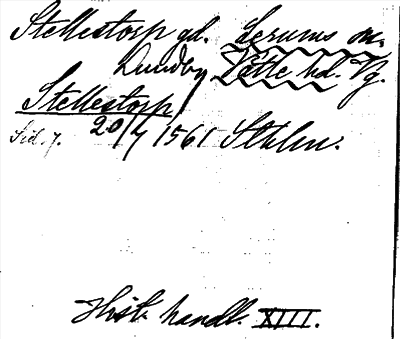 Stellestorp gd. Lerums sn.
Lundby Vättle hd. Vg.
Stellestorp
Sid. 7. 20/7 1561 Sthlm.
Hist. handl. XIII.